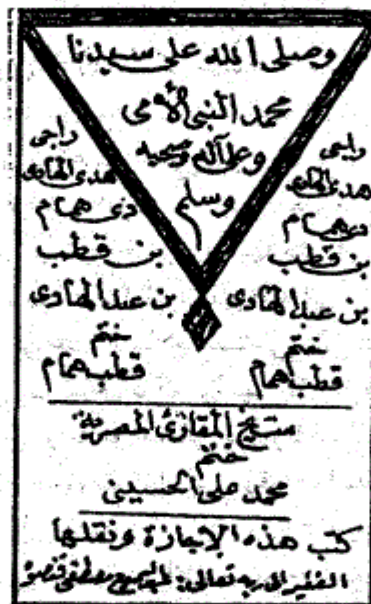 وصلى الله على سيدنا
محمد النبي الأمى
وعلى آله وصحبه
وسلم
راجى
هدى الهادى
ذى همام
بن قطب
بن عبد الهادى
ختم
قطب همام
راجى
هدى الهادى
ذى همام
بن قطب
بن عبد الهادى
ختم
قطب همام
مشيخ المقارئ المصرية
ختم
محمد على الحسينى
كتب هذه الإجازة ونقلها
الفقير إلى ربه تعالى: